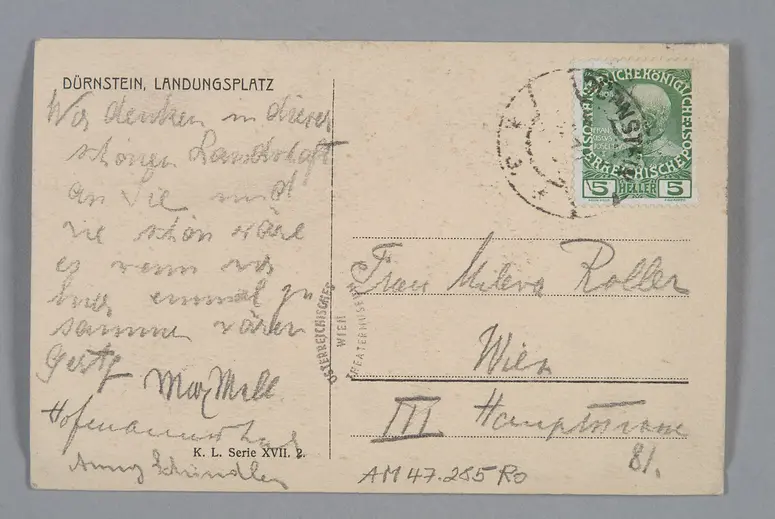 DÜRNSTEIN, LANDUNGSPLATZ
Wir denken in dieser
schönen Landschaft
an Sie und
wie schön wäre
es wenn wir
hier einmal zu
sammen wären
Gerty
Hofmannsthal
K. L. Serie XVII. 2.
KAISERLICHE KÖNIGLICHE
ÖSTERREICHISCHE POST
FRANZ JOSEF I
5 HELLER 5
Frau Mileva Roller
Wien
III Hauptstrasse
81.
ÖSTERREICHISCHES
WIEN
THEATERMUSEUM
AM 47.285 Ro